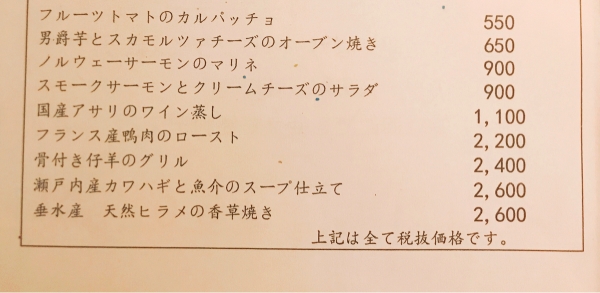 フルーツトマトのカルパッチョ 550
男爵芋とスカモルツァチーズのオーブン焼き 650
ノルウェーサーモンのマリネ 900
スモークサーモンとクリームチーズのサラダ 900
国産アサリのワイン蒸し 1,100
フランス産鴨肉のロースト 2,200
骨付き仔羊のグリル 2,400
瀬戸内産カワハギと魚介のスープ仕立て 2,600
垂水産 天然ヒラメの香草焼き 2,600
上記は全て税抜価格です。